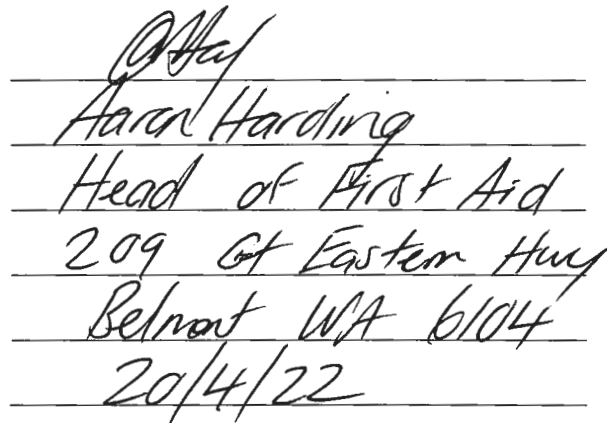 Aaron Harding
Head of First Aid
209 Gt Eastern Hwy
Belmont WA 6104
20/4/22